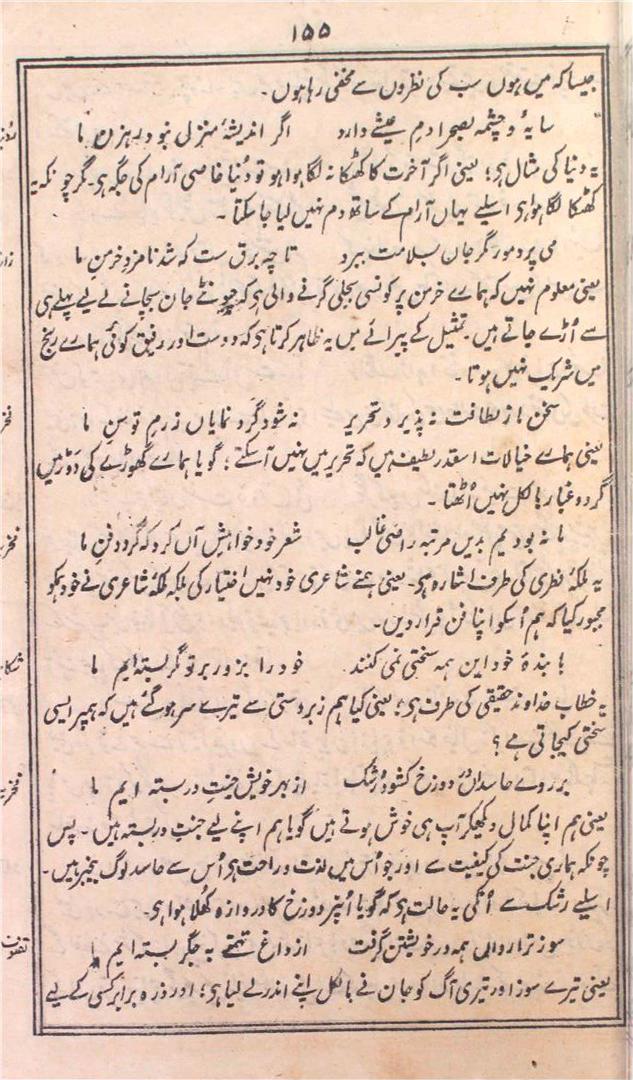 ۱۵۵
جیساکہ میں ہوں سب کی نظروں سے مخفی رہا ہوں۔
سایہ و چشمہ بصحرا دم عیشے دارد اگر اندیشۂ منزل نبود رہزن ما
یہ دنیا کی مثال ہی؛ یعنی اگر آخرت کا کھٹکا نہ لگا ہوا ہو تو دُنیا خاصی آرام کی جگہ ہی۔ مگر چونکہ یہ
کھٹکا لگا ہوا ہی اسلیے یہاں آرام کے ساتھ دم نہیں لیا جا سکتا۔
می پرد مور مگر جاں بسلامت ببرد تا چہ برق ست کہ شد نامزد خرمن ما
یعنی معلوم نہیں کہ ہمارے خرمن پر کونسی بجلی گرنے والی ہی کہ چیونٹے جان بچانے کے لیے پہلے ہی
سے اُڑے جاتے ہیں۔ تمثیل کے پیرائے میں یہ ظاہر کرتا ہی کہ دوست اور رفیق کوئی ہمارے رنج
میں شریک نہیں ہوتا۔
سخن ما ز لطافت نہ پذیرد تحریر نہ شود گرد نمایاں ز رم توسن ما
یعنی ہمارے خیالات اسقدر لطیف ہیں کہ تحریر میں نہیں آ سکتے؛ گویا ہمارے گھوڑے کی دَوڑ میں
گرد و غبار بالکل نہیں اُٹھتا۔
ما نہ بودیم بدیں مرتبہ راضی غالب شعر خود خواہش آں کرد کہ گردد فن ما
یہ ملکۂ فطری کی طرف اشارہ ہی۔ یعنی ہمنے شاعری خود نہیں اختیار کی بلکہ ملکۂ شاعری نے خود ہمکو
مجبور کیا کہ ہم اُسکو اپنا فن قرار دیں۔
با بندۂ خود این ہمہ سختی نمی کنند خود را بزور بر تو مگر بستہ ایم ما
یہ خطاب خداوند حقیقی کی طرف ہی؛ یعنی کیا ہم زبردستی سے تیرے سر ہو گئے ہیں کہ ہمپر ایسی
سختی کیجاتی ہے؟
بر روے حاسداں در دوزخ کشودہ رشک از بہر خویش جنت در بستہ ایم ما
یعنی ہم اپنا کمال دیکھکر آپ ہی خوش ہوتے ہیں گویا ہم اپنے لیے جنت در بستہ ہیں۔ پس
چونکہ ہماری جنت کی کیفیت سے اور جو اُس میں لذت و راحت ہی اُس سے حاسد لوگ بیخبر ہیں۔
اسلیے رشک سے اُنکی یہ حالت ہی کہ گویا اُنپر دوزخ کا دروازہ کھُلا ہوا ہی۔
سوز ترا رواں ہمہ در خویشتن گرفت از داغ تہمتے بہ جگر بستہ ایم ما
یعنی تیرے سوز اور تیری آگ کو جان نے بالکل اپنے اندر لے لیا ہی؛ اور ذرہ برابر کسی کے لیے